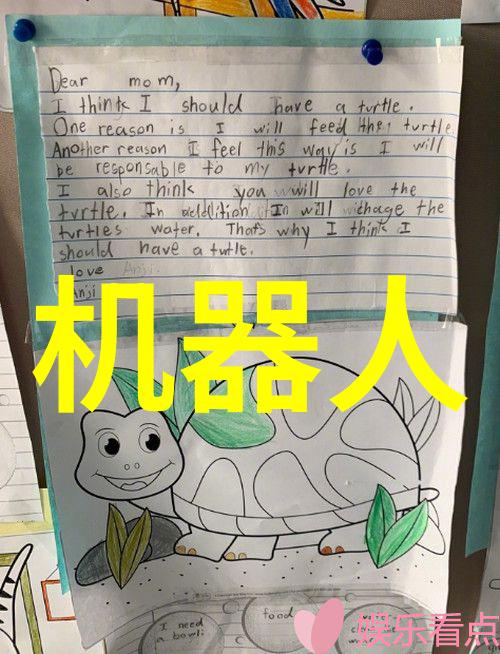 Dear mom,
I think I should have a turtle.
One reason is I will feed the turtle.
Another reason I feel this way is I will
be responsable to my turtle.
I also think you will love the
turtle. In addition I will chage the
turtles water. That's why I think I
should have a turtle.
love Anji
Anji
机器人
I need
a bowl
food
娱乐看点